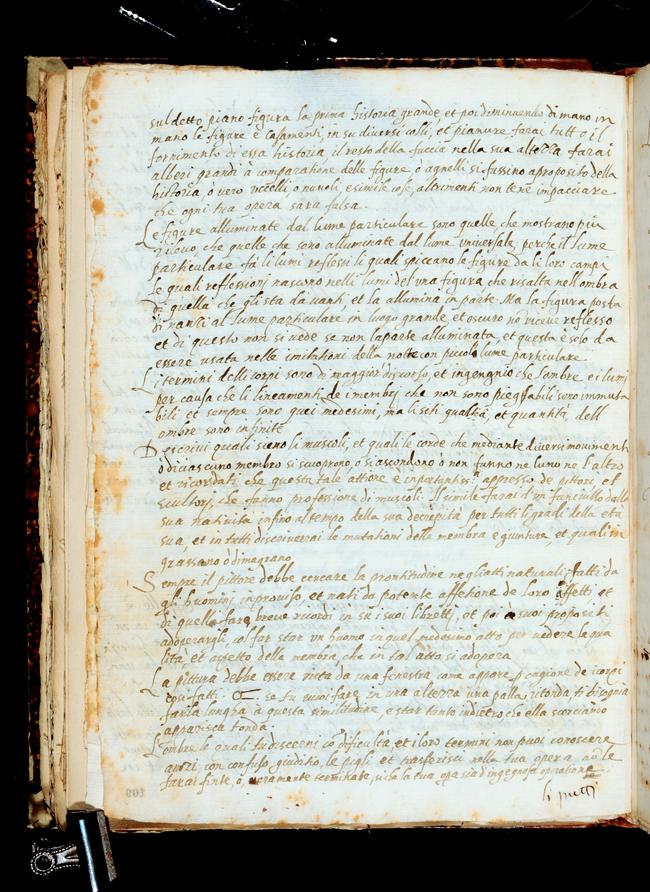 sul detto piano figura la prima historia grande, et poi diminuendo di mano in
mano le figure e casamenti, in su diversi colli, et pianure, farai tutto il
fornimento di essa historia il resto della faccia nella sua altezza farai
alberi grandi à comparatione delle figure, ò agnelli si fussino approposito della
historia ò vero uccelli o nuvoli, e simile cose, altrimenti non te ne impacciare
che ogni tua opera sara falsa.
Le figure alluminate dal lume particulare sono quelle che mostrano piu
rilievo, che quelle che sono alluminate dal lume universale, perche il lume
particulare fà li lumi reflessi li quali spiccano le figure da li loro campi
le quali reflessioni nascono nelli lumi del una figura che risalta nell'ombra
di quella che gli sta davanti, et la allumina in parte. Ma la figura posta
dinanzi al lume particulare in luogo grande et oscuro nò riceve reflesso
et di questo non si vede se non la parte alluminata, et questa è solo da
essere usata nelle imitationi della notte con piccolo lume particulare
Li termini delli corpi sono di maggior discorso, et ingengnio che l'ombre e i lumi
per causa che li lineamenti de i membri che non sono piegabili sono immuta
bili et sempre sono quei medesimi, ma li siti qualità, et quantità dell
ombre sono infinite
Descrivi quali sieno li muscoli, et quali le corde che mediante diversi movimenti
di ciascuno membro si scuoprono, ò si ascondono ò non fanno ne l'uno ne l'altro
et ricordati che questa tale attione è appresso de pittori, et
scultori, che fanno professione di muscoli. Il simile farai d'un fanciullo dalla
sua natività infino al tempo della sua decrepità per tutti li gradi della età
sua, et in tutti discriverai le mutationi delle membra e giunture, et quali in
grassano ò dimagrano
Sempre il pittore debbe cercare la prontitudine negli atti naturali fatti da
gli huomini inproviso, et nati da potente affetione de loro affetti et
di quelli fare breve ricordi in su i suoi libretti, et poi à suoi propositi
adoperargli, col far star un huomo in quel medesimo atto per vedere la qua
lità, et aspetto delle membra, che in tal atto si adopera
La pittura debbe essere vista da una fenestra, come appare p cagione de i corpi
cosi fatti. Et se tu vuoi fare in una altezza una palla ritonda, ti bisognia
farla lungha à questa similitudine, e star tanto indietro che ella scorciando
apparisca tonda.
L'ombre le quali tu discerni cò dificultà, et i loro termini non puoi conoscere
anzi con confuso giuditio, le pigli et trasferisci nella tua opera, nò le
farai finite, ò veramente terminate, sichè la tua opa sia d'ingegnosa operatione
li putti
109